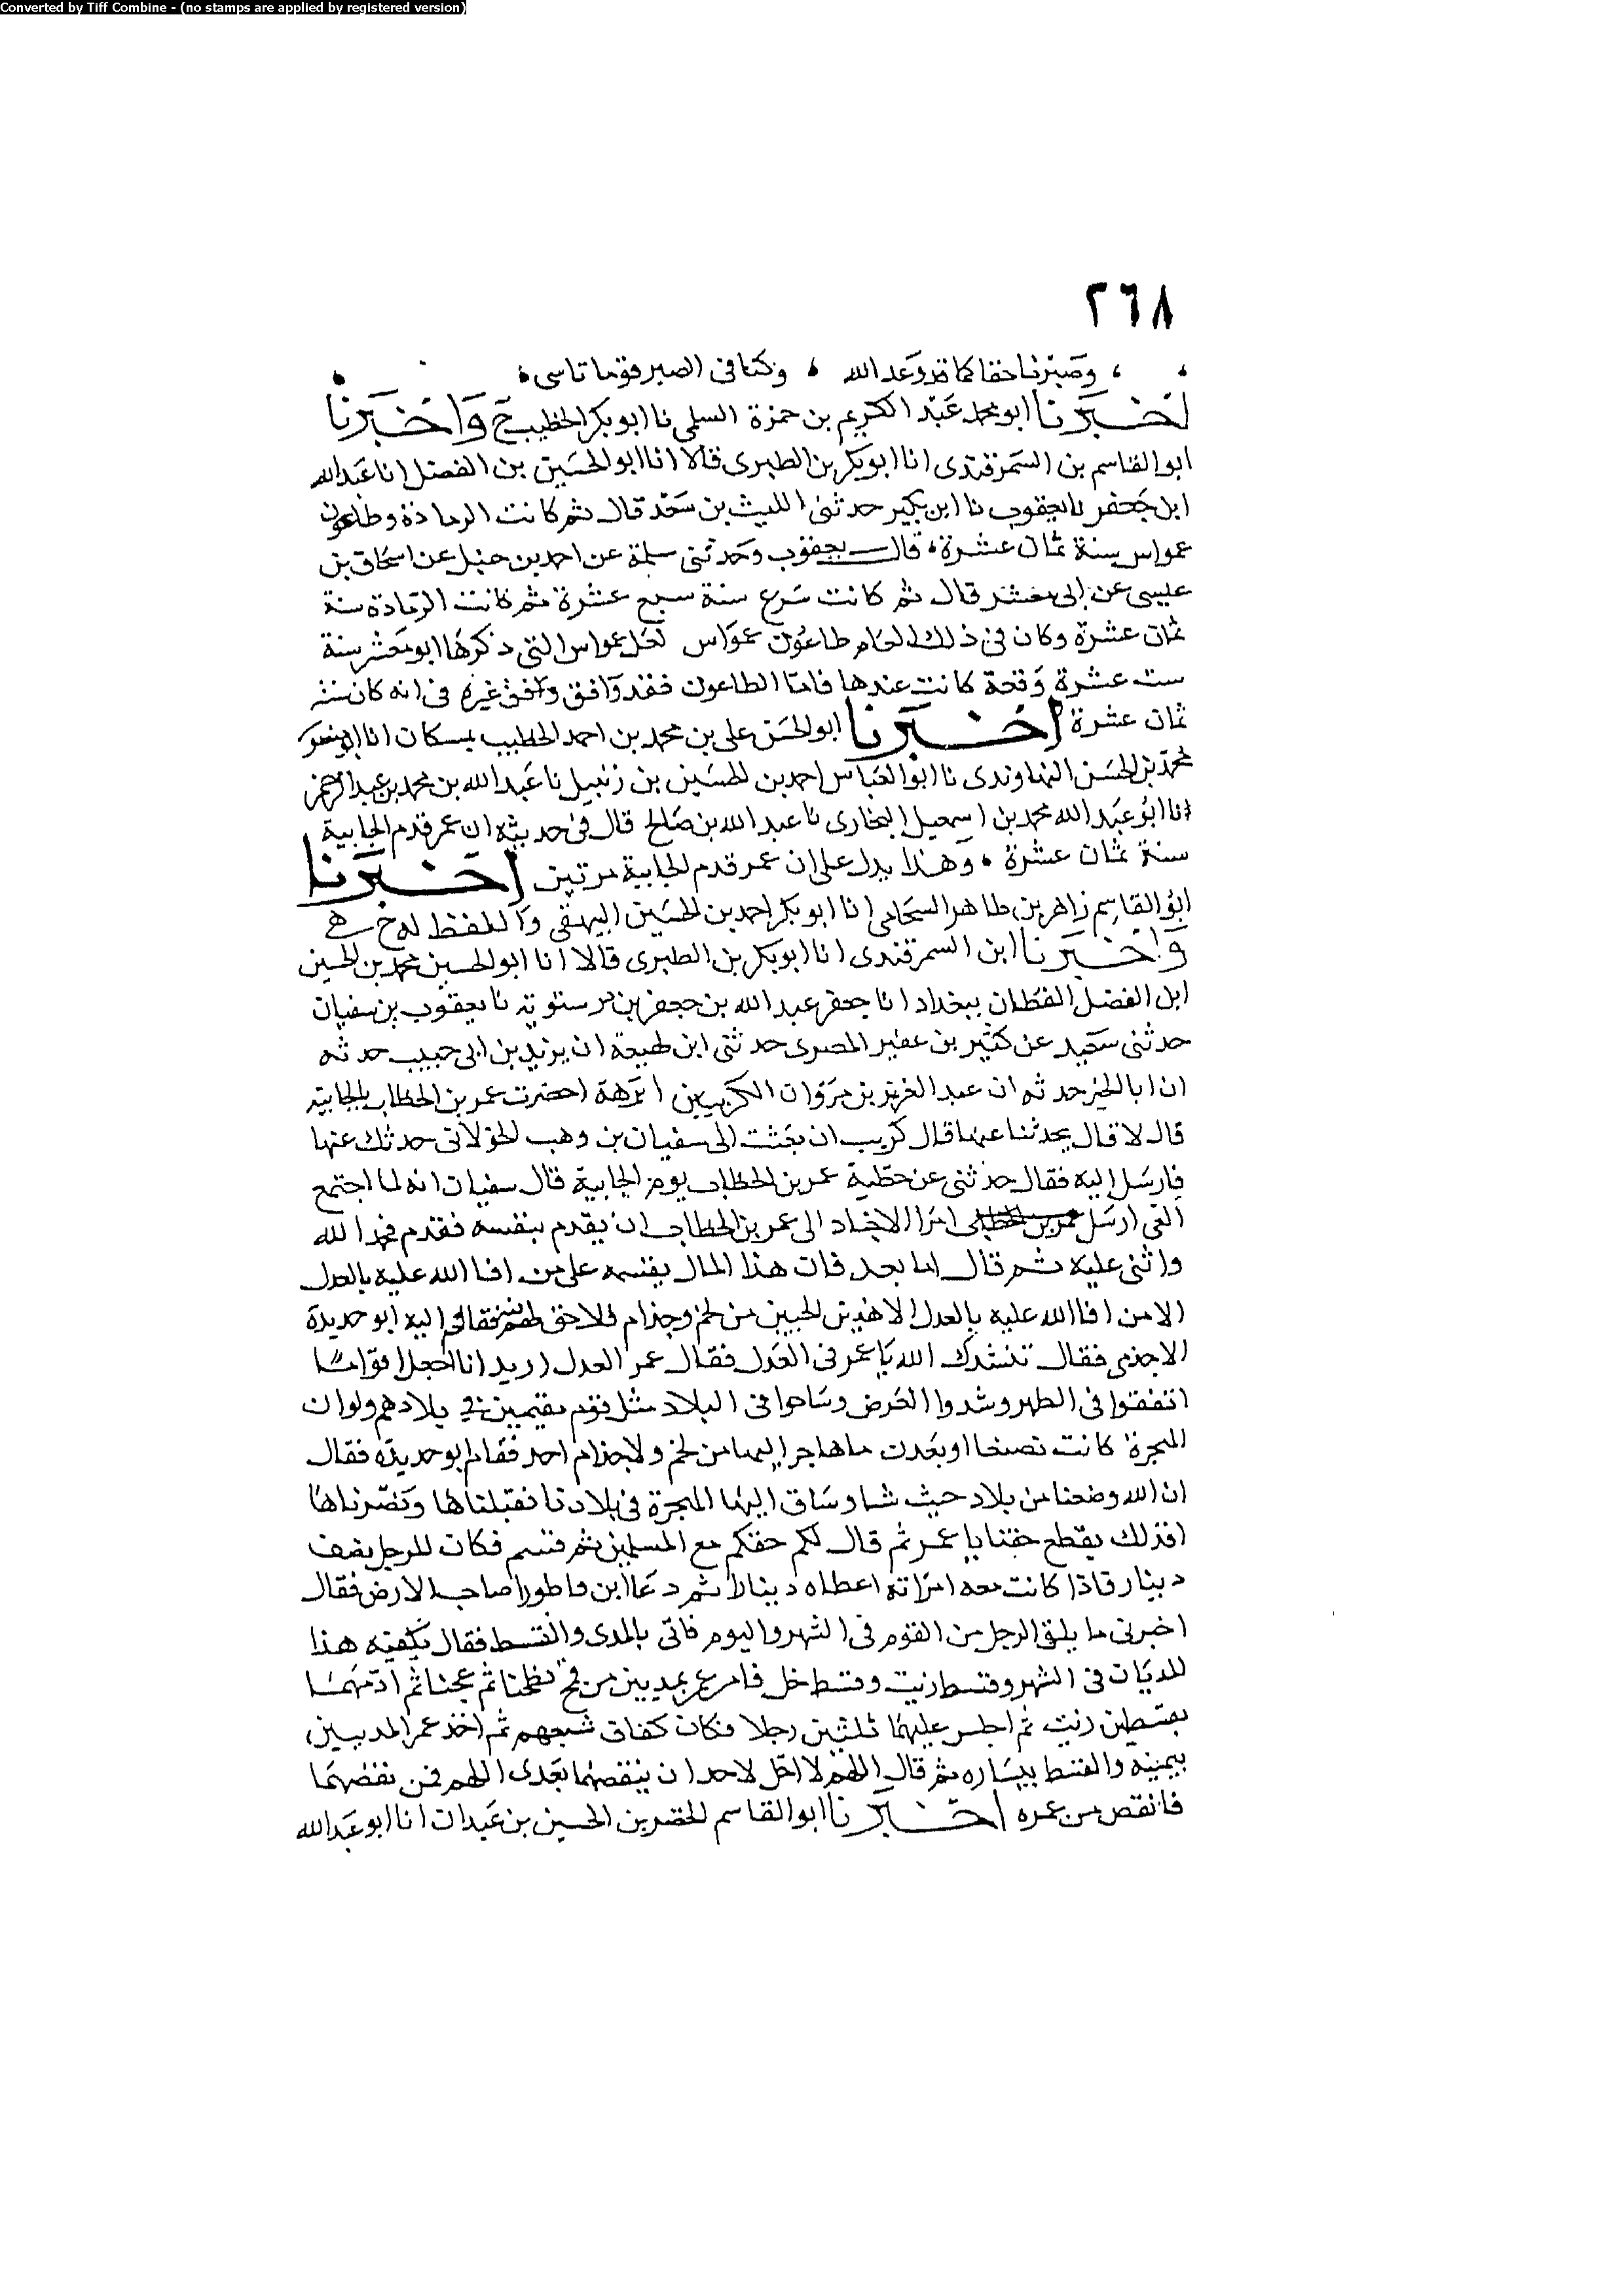 Converted by Tiff Combine - (no stamps are applied by registered version)
٢٦٨
وصبرنا حقا كما قد وعد الله ، وكنا في الصبر قوما تاسى ،
اخبرنا ابو محمد عبد الكريم بن حمزة السلمي نا ابو بكر الخطيب ح واخبرنا
ابو القاسم بن السمرقندى انا ابو بكر بن الطبرى قالا انا ابو الحسين بن الفضل انا عبد الله
ابن جعفر نا يعقوب نا ابن بكير حدثنى الليث بن سعد قال ثم كانت الرمادة وطاعون
عمواس سنة ثمان عشرة ، قال يعقوب وحدثنى سلمة عن احمد بن حنبل عن اسحاق بن
عيسى عن ابى معشر قال ثم كانت سرع سنة سبع عشرة ثم كانت الرمادة سنة
ثمان عشرة وكان في ذلك العام طاعون عمواس لعل عمواس التي ذكرها ابو معشر سنة
ست عشرة وقعة كانت عندها فاما الطاعون فقد وافق وافق غيره في انه كان سنة
ثمان عشرة اخبرنا ابو الحسن على بن محمد بن احمد الخطيب بمسكان انا ابو منصور
محمد بن الحسن النهاوندى نا ابو العباس احمد بن الحسين بن زنبيل نا عبد الله بن محمد بن عبد الرحمن
انا ابو عبد الله محمد بن اسمعيل البخارى نا عبد الله بن صالح قال في حديثه ان عمر قدم الجابية
سنة ثمان عشرة ، وهذا يدل على ان عمر قدم الجابية مرتين اخبرنا
ابو القاسم زاهر بن طاهر السحامى انا ابو بكر احمد بن الحسين البيهقى واللفظ له ح
واخبرنا ابن السمرقندى انا ابو بكر بن الطبرى قالا انا ابو الحسين محمد بن الحسين
ابن الفضل القطان ببغداد انا جعفر عبد الله بن جعفر بن درستويه نا يعقوب بن سفيان
حدثنى سعيد عن كثير بن عفير المصرى حدثنى ابن لهيعة ان يزيد بن ابى حبيب حدثه
ان ابا الخير حدثه ان عبد العزيز بن مروان الكريب بن ابرهة احضرت عمر بن الخطاب بالجابية
قال لا قال يحدثنا عنها قال كريب ان بعثت الى سفيان بن وهب الخولانى حدثك عنها
فارسل اليه فقال حدثنى عن خطبة عمر بن الخطاب يوم الجابية قال سفيان انه لما اجتمع
الفى ارسل امرا الاجناد الى عمر بن الخطاب ان يقدم بنفسه فقدم فحمد الله
واثنى عليه ثم قال اما بعد فان هذا المال يقسمه على من افا الله عليه بالعدل
الا من افا الله عليه بالعدل الا هذين الحيين من لخم وجذام فلا حق لهم فقام اليه ابو حديدة
الاجذمى فقال ننشدك الله يا عمر في العدل فقال عمر العدل اريد انا اجعل اقواما
انفقوا في الظهر وشدوا الغرض وساحوا في البلاد مثل قوم مقيمين في بلادهم ولو ان
الهجرة كانت بصنعا او بعدن ما هاجر اليها من لخم ولا جذام احد فقام ابو حديدة فقال
ان الله وضعنا من بلاد حيث شا وساق الينا الهجرة في بلادنا فقبلناها ونصرناها
افذلك يقطع حقنا يا عمر ثم قال لكم حقكم مع المسلمين ثم قسم فكان للرجل نصف
دينار فاذا كانت معه امراته اعطاه دينارا ثم دعا ابن قاطورا صاحب الارض فقال
اخبرنى ما يكفى الرجل من القوم في الشهر واليوم فاتى بالمدى والقسط فقال يكفيه هذا
المديان في الشهر وقسط زيت وقسط خل فامر عمر بمديين من قمح فطحنا ثم عجنا ثم ادمهما
بقسطين زيت ثم اجلس عليهما ثلثين رجلا فكان كفاف شبعهم ثم اخذ عمر المديين
بيمينه والقسط بيساره ثم قال اللهم لا احل لاحد ان ينقصهما بعدى اللهم فمن نقصهما
فانقص من عمره اخبرنا ابو القاسم الخضر بن الحسين بن عبدان انا ابو عبد الله